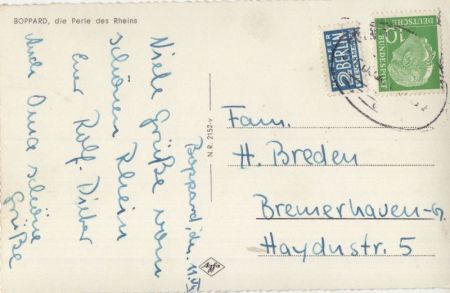 BOPPARD, die Perle des Rheins
Boppard, den 11.VI
Viele Grüße vom
schönen Rhein
Euer Rolf-Dieter
Auch Oma schöne
Grüße
N.R. 2152-v
Agfa
NOTOPFER
2 BERLIN
STEUERMARKE
DEUTSCHE
BUNDESPOST
10
Fam.
H. Breden
Bremerhaven-G.
Haydnstr. 5